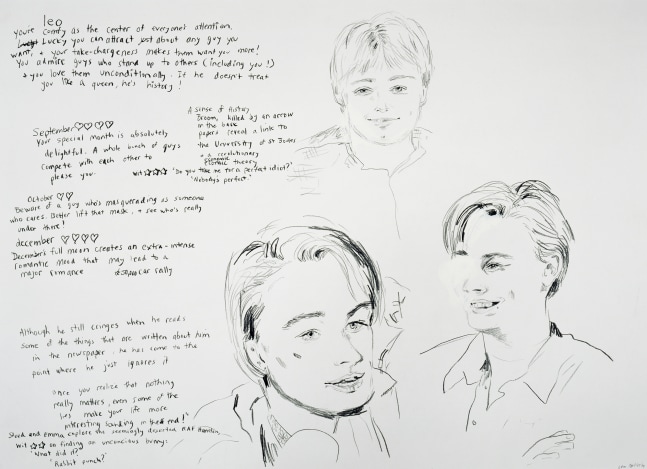 leo
you're comfy as the center of everyone's attention.
Lucky you can attract just about any guy you
want, + your take-chargeness makes them want you more!
You admire guys who stand up to others (including you!)
+ you love them unconditionally. If he doesn't treat
you like a queen, he's history!
September ♡♡♡♡
Your special month is absolutely
delightful. A whole bunch of guys
compete with each other to
please you.
A sense of History
Broom, killed by an arrow
in the back
papers reveal a link to
the University of St Bedes
+ a revolutionary
economic theory
wit ☆☆☆ 'Do you take me for a perfect idiot?'
'Nobody's perfect.'
October ♡♡
Beware of a guy who's masquerading as someone
who cares. Better lift that mask, + see who's really
under there!
december ♡♡♡♡
December's full moon creates an extra-intense
romantic mood that may lead to a
major romance
car rally
Although he still cringes when he reads
some of the things that are written about him
in the newspaper, he has come to the
point where he just ignores it
"Are you realize that nothing
really matters, even some of the
lies make your life more
interesting sounding in the end!"
and Emma explore the seemingly deserted RAF Hamilin,
wit ☆☆ on finding an unconscious bunny:
'What did it?'
'Rabbit punch?'